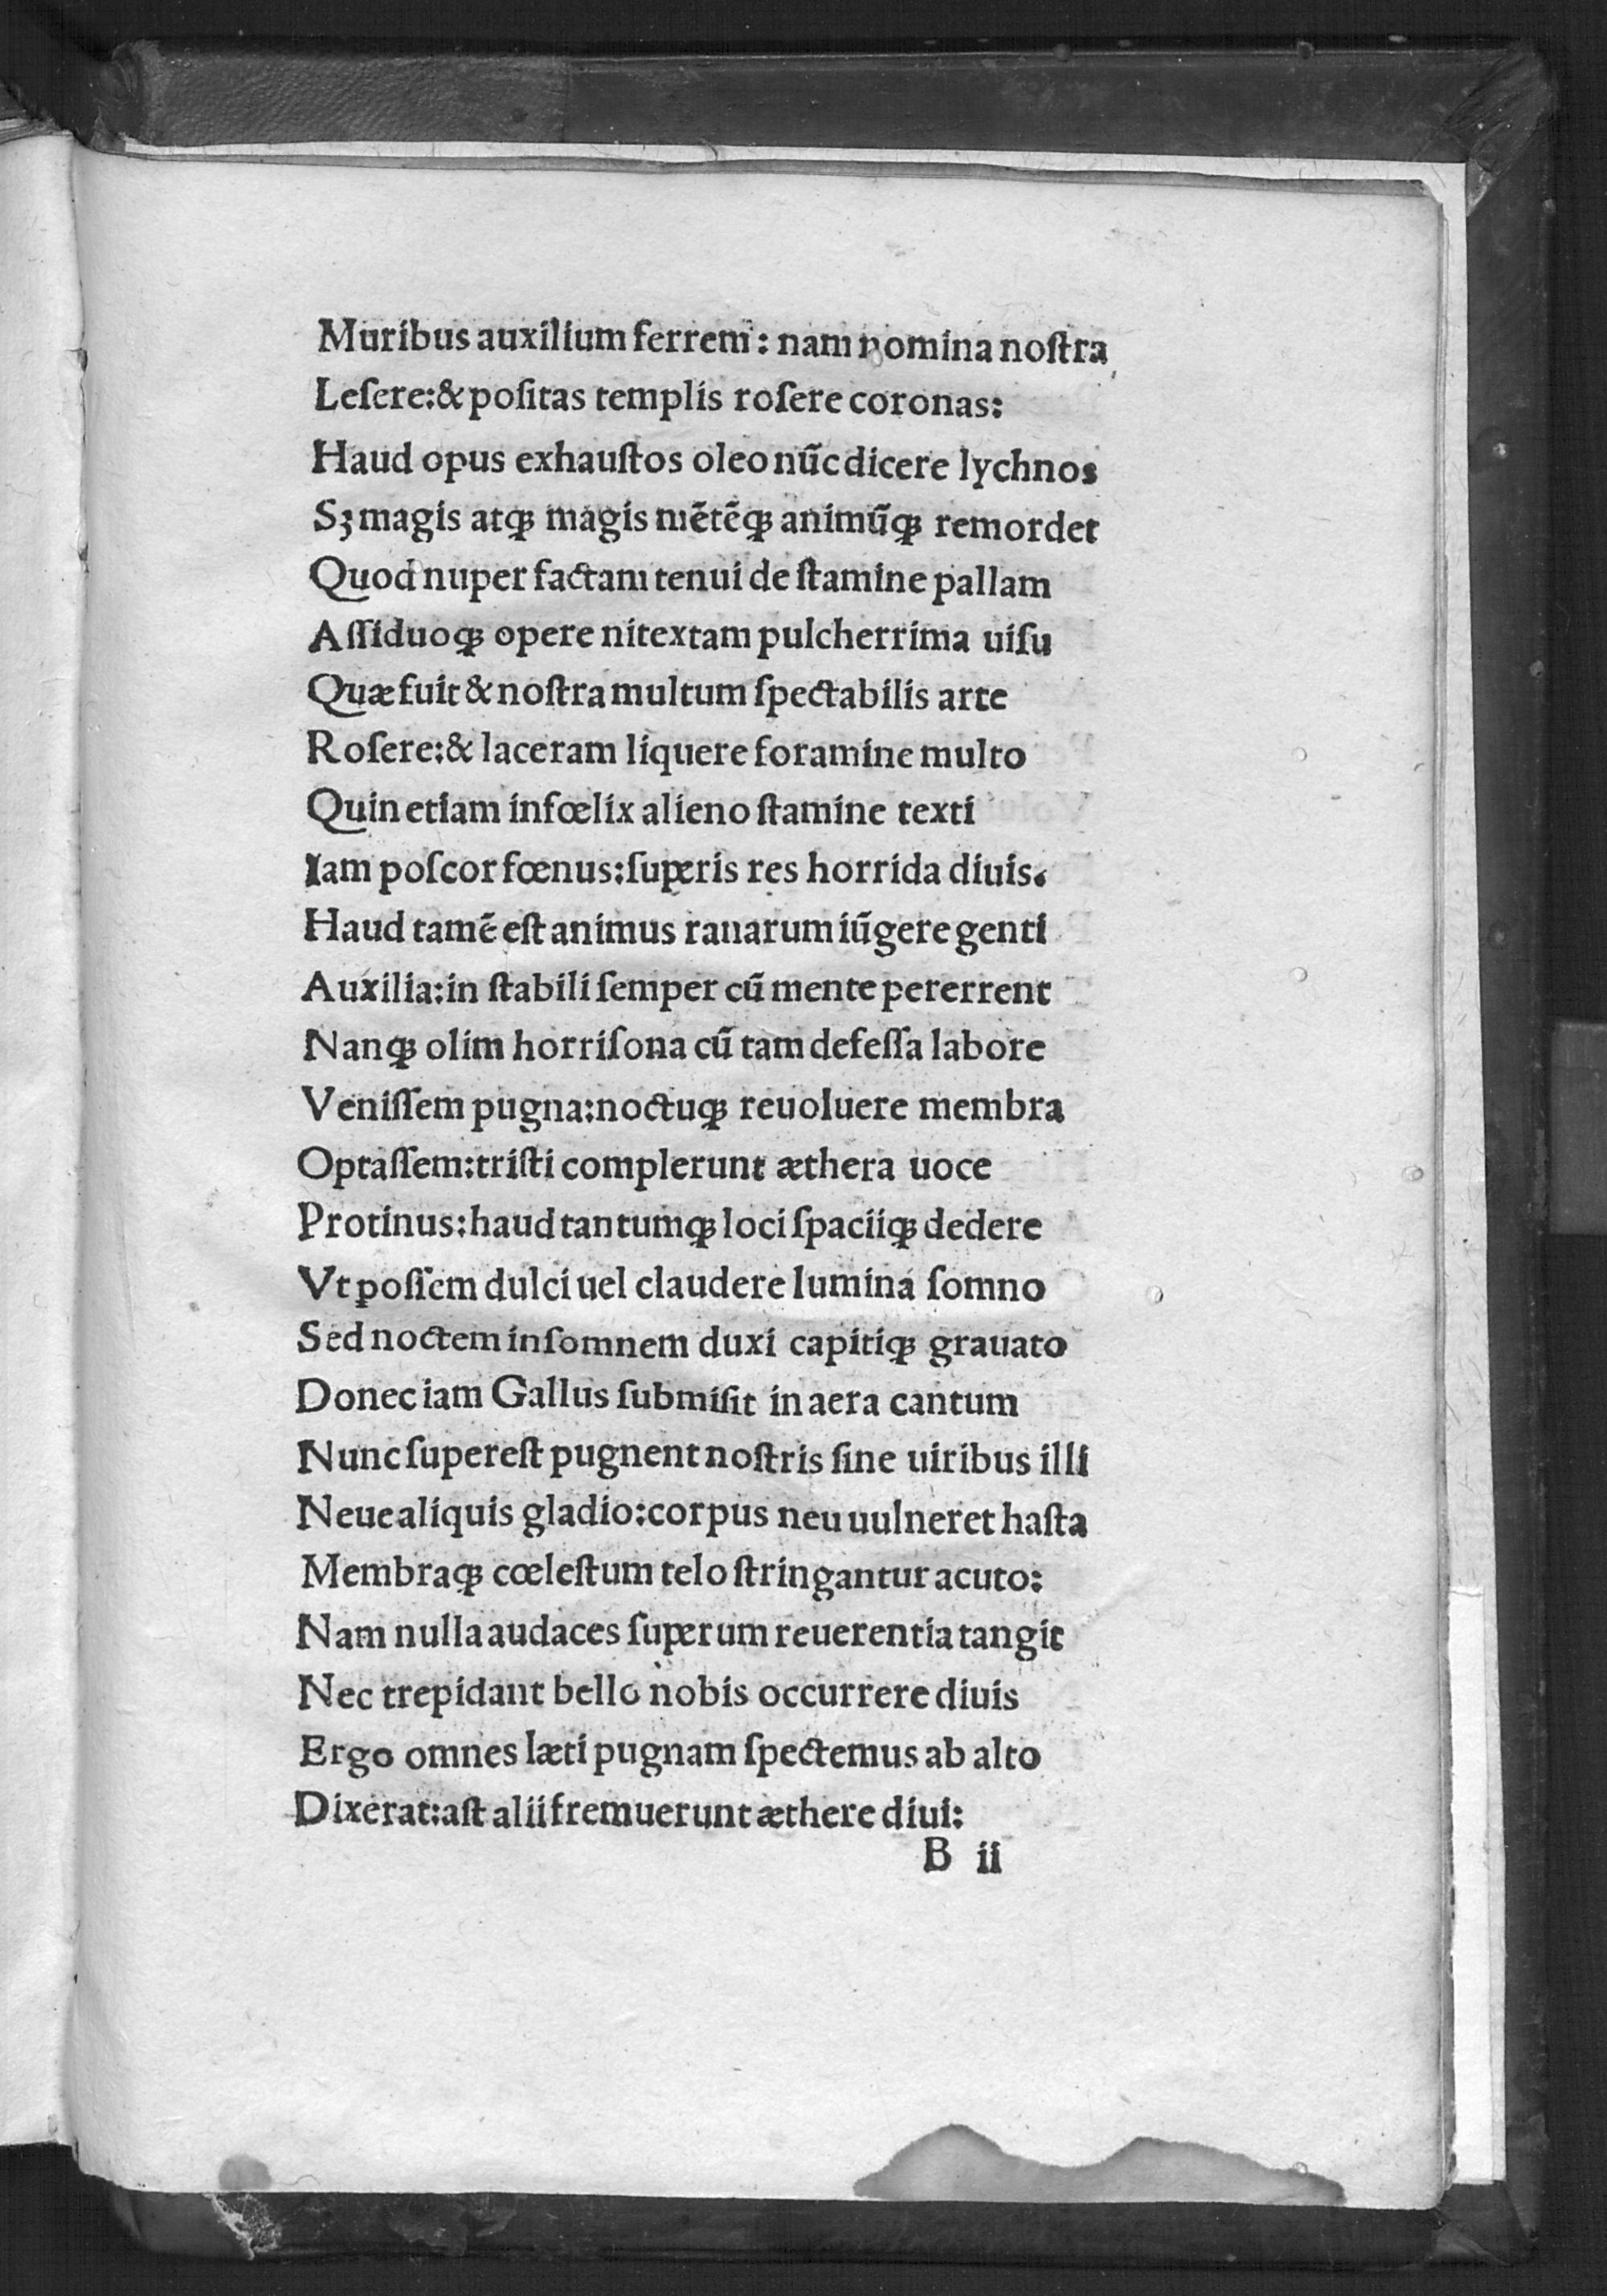 Muribus auxilium ferrem: nam nomina noſtra
Leſere:& poſitas templis roſere coronas:
Haud opus exhauſtos oleo nūc dicere lychnos
Sꝫ magis atqꝫ magis mētēqꝫ animūqꝫ remordet
Quod nuper factam tenui de ſtamine pallam
Aſſiduoqꝫ opere nitextam pulcherrima uiſu
Quæ fuit & noſtra multum ſpectabilis arte
Roſere:& laceram liquere foramine multo
Quin etiam infœlix alieno ſtamine texti
Iam poſcor fœnus:ſuperis res horrida diuis.
Haud tamē eſt animus ranarum iūgere genti
Auxilia:in ſtabili ſemper cū mente pererrent
Nanqꝫ olim horriſona cū tam defeſſa labore
Veniſſem pugna:noctuqꝫ reuoluere membra
Optaſſem:triſti complerunt æthera uoce
Protinus:haud tantumqꝫ loci ſpaciiqꝫ dedere
Vt poſſem dulci uel claudere lumina ſomno
Sed noctem inſomnem duxi capitiqꝫ grauato
Donec iam Gallus ſubmiſit in aera cantum
Nunc ſupereſt pugnent noſtris ſine uiribus illi
Neue aliquis gladio:corpus neu uulneret haſta
Membraqꝫ cœleſtum telo ſtringantur acuto:
Nam nulla audaces ſuperum reuerentia tangit
Nec trepidant bello nobis occurrere diuis
Ergo omnes læti pugnam ſpectemus ab alto
Dixerat:aſt alii fremuerunt æthere diui:
B ii